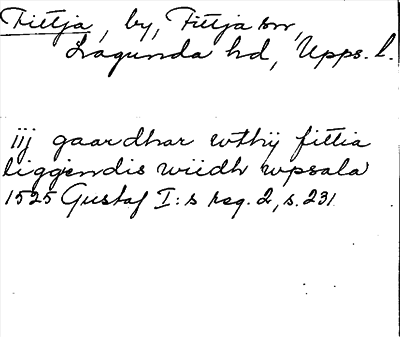 Fittja, by, Fittja sn,
Lagunda hd, Upps. l.
iij gaardhar wthij fittia
liggendis wiidh wpsala
1525 Gustaf I:s reg. 2, s. 231